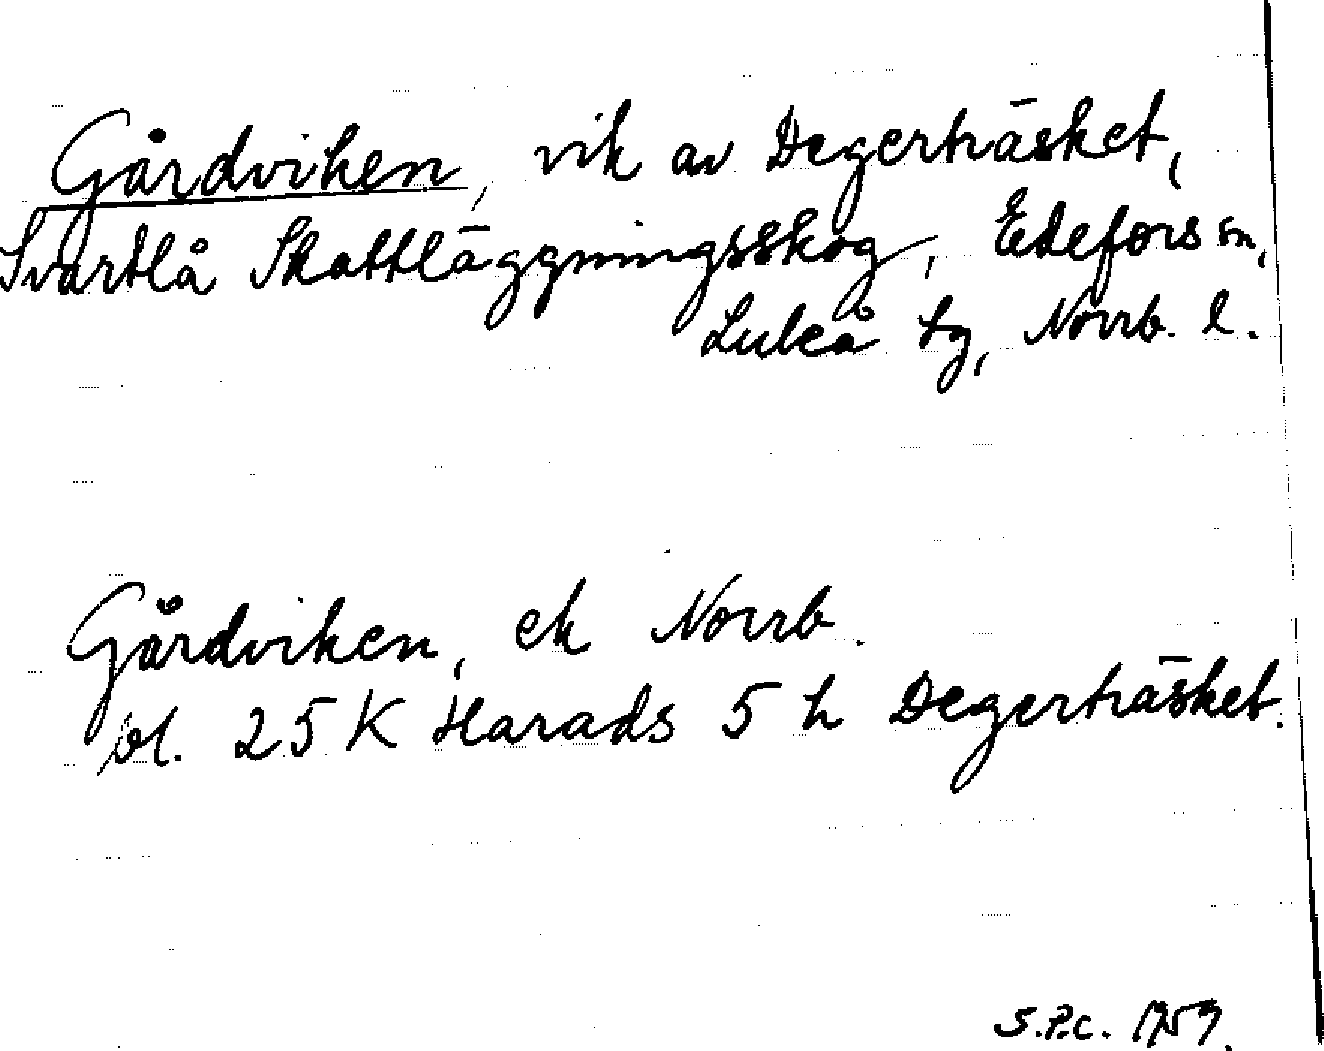 Gårdviken, vik av Degerträsket,
Svartlå Skattläggningsskog, Edefors sn,
Luleå tg, Norrb. l.
Gårdviken, ek Norrb.
bl. 25 K Harads 5 h Degerträsket.
S.P.C. 1959.